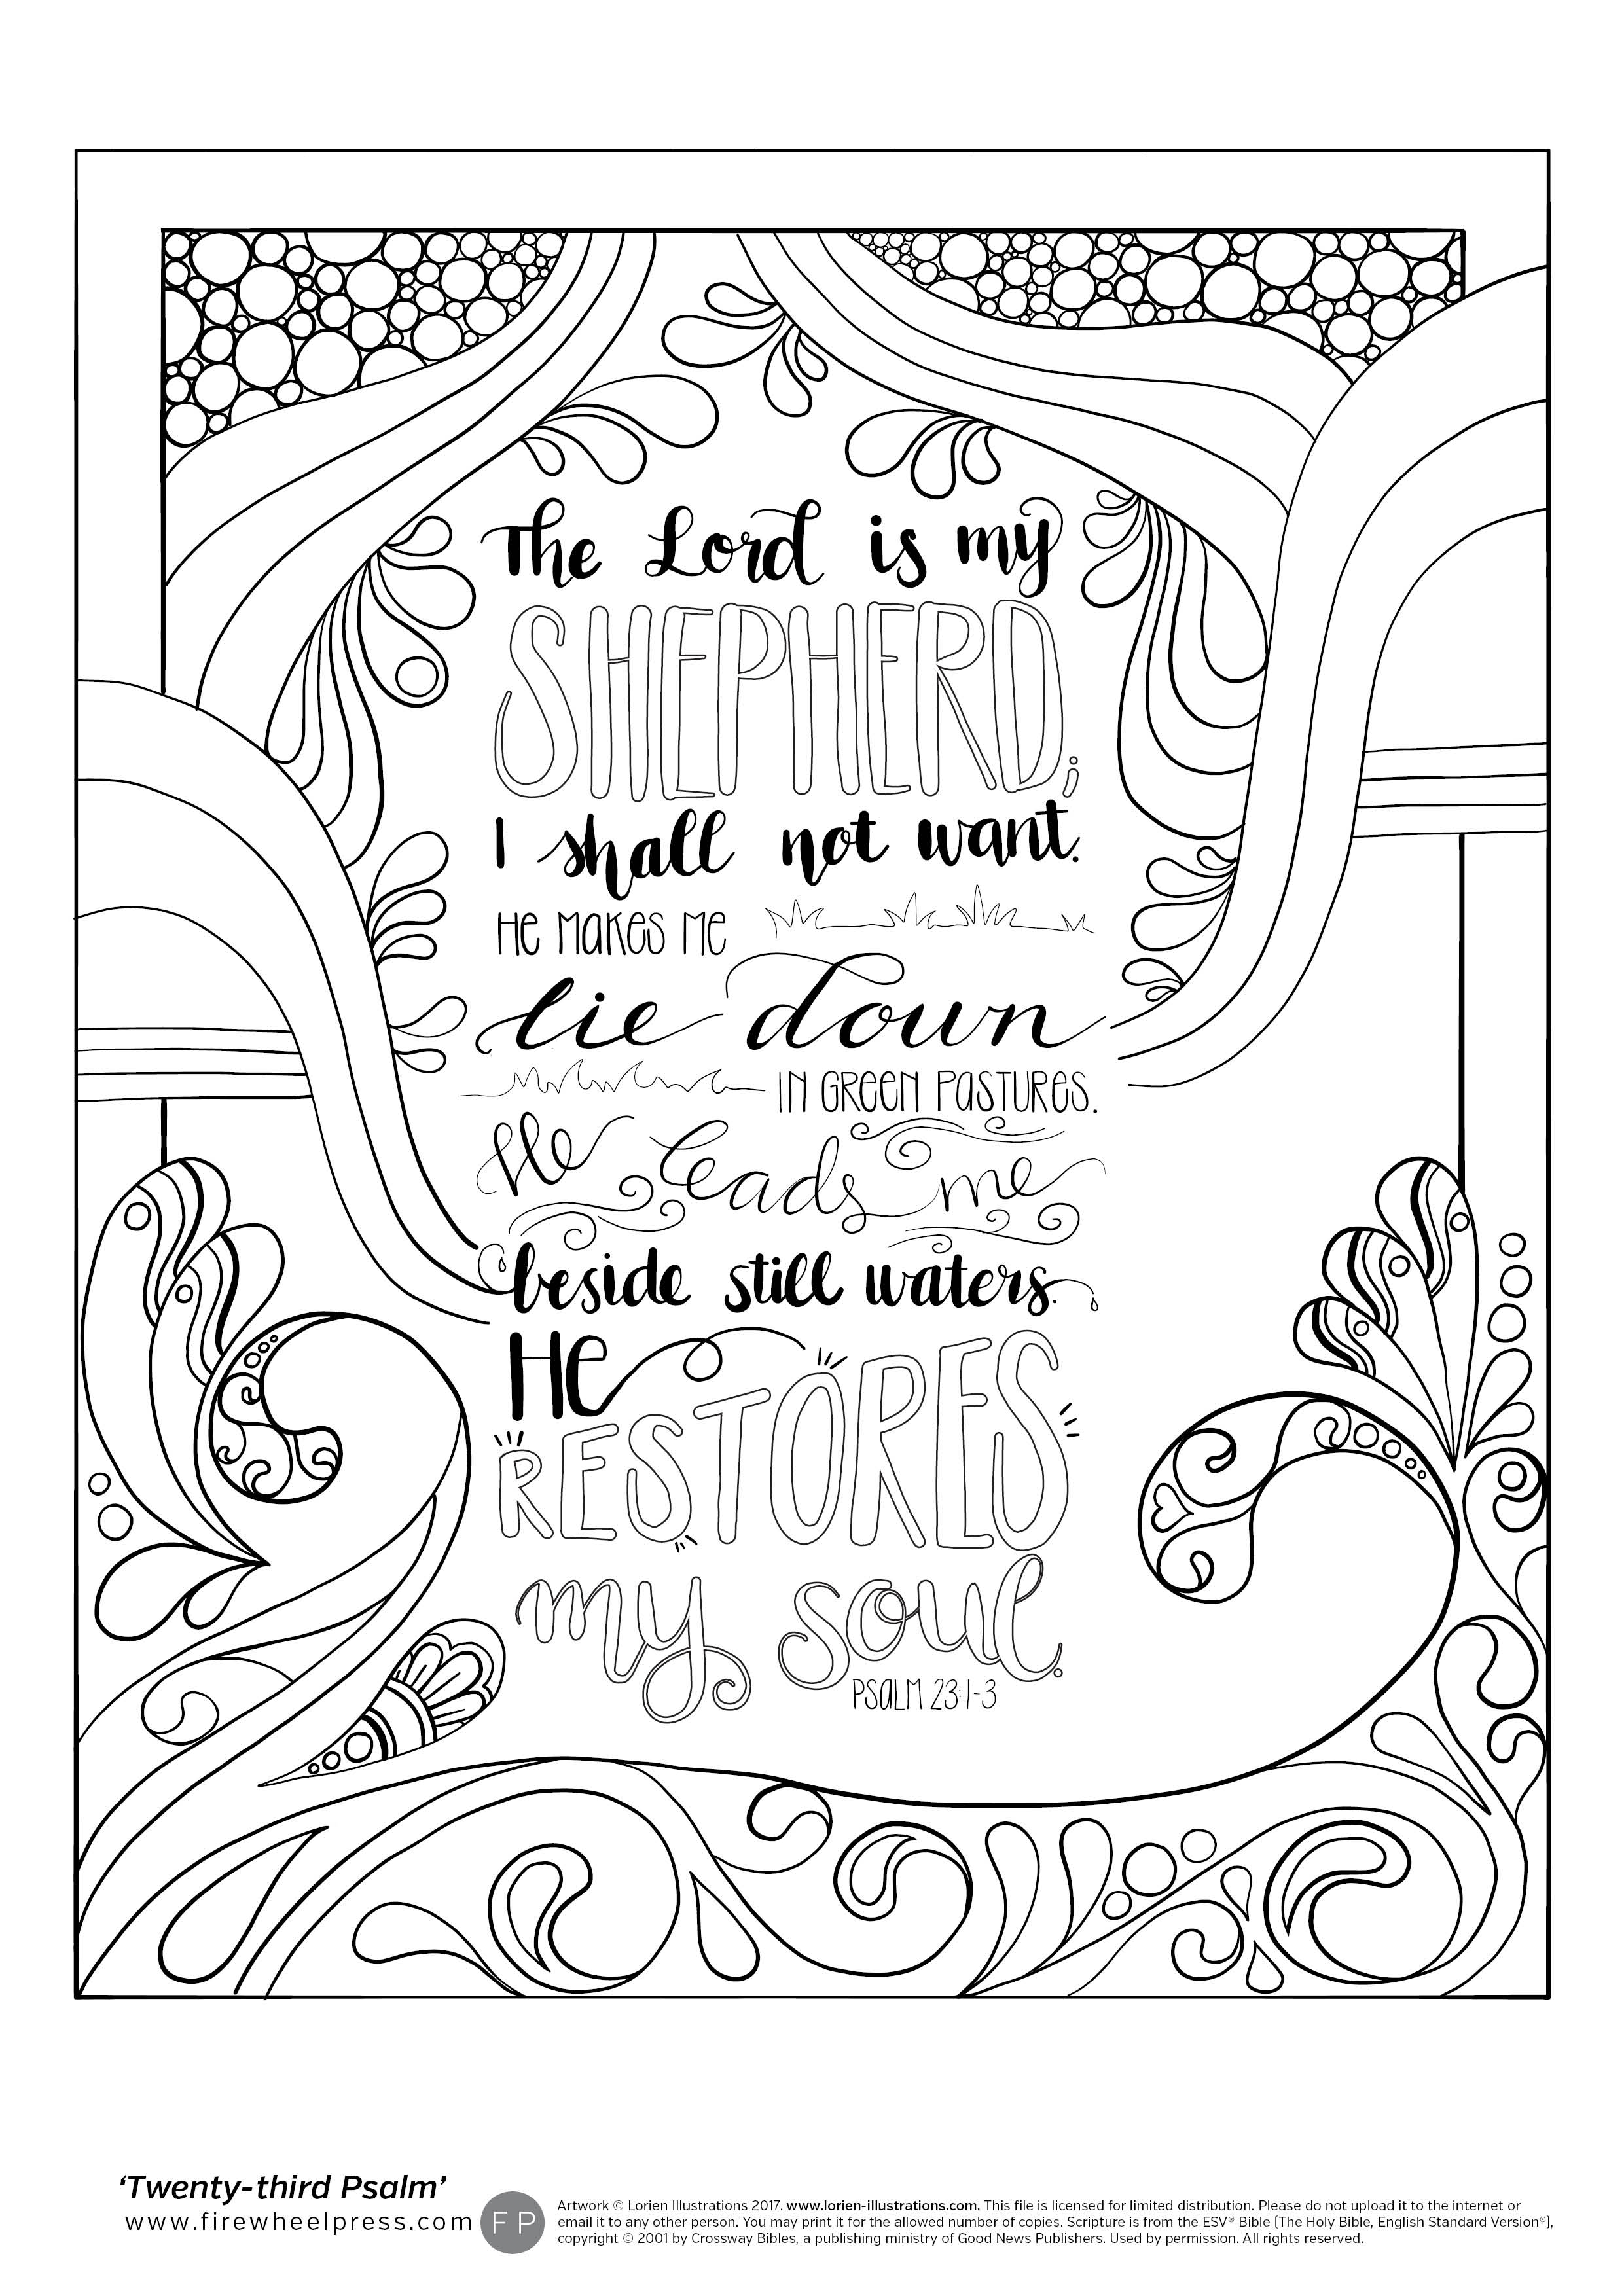 The Lord is my
SHEPHERD;
I shall not want.
He Makes Me
lie down
IN GREEN PaSTURES.
He leads me
beside still waters.
He
RESTORES
my soul.
PSaLM 23:1-3
‘Twenty-third Psalm’
www.firewheelpress.com
FP
Artwork © Lorien Illustrations 2017. www.lorien-illustrations.com. This file is licensed for limited distribution. Please do not upload it to the internet or
email it to any other person. You may print it for the allowed number of copies. Scripture is from the ESV® Bible (The Holy Bible, English Standard Version®),
copyright © 2001 by Crossway Bibles, a publishing ministry of Good News Publishers. Used by permission. All rights reserved.